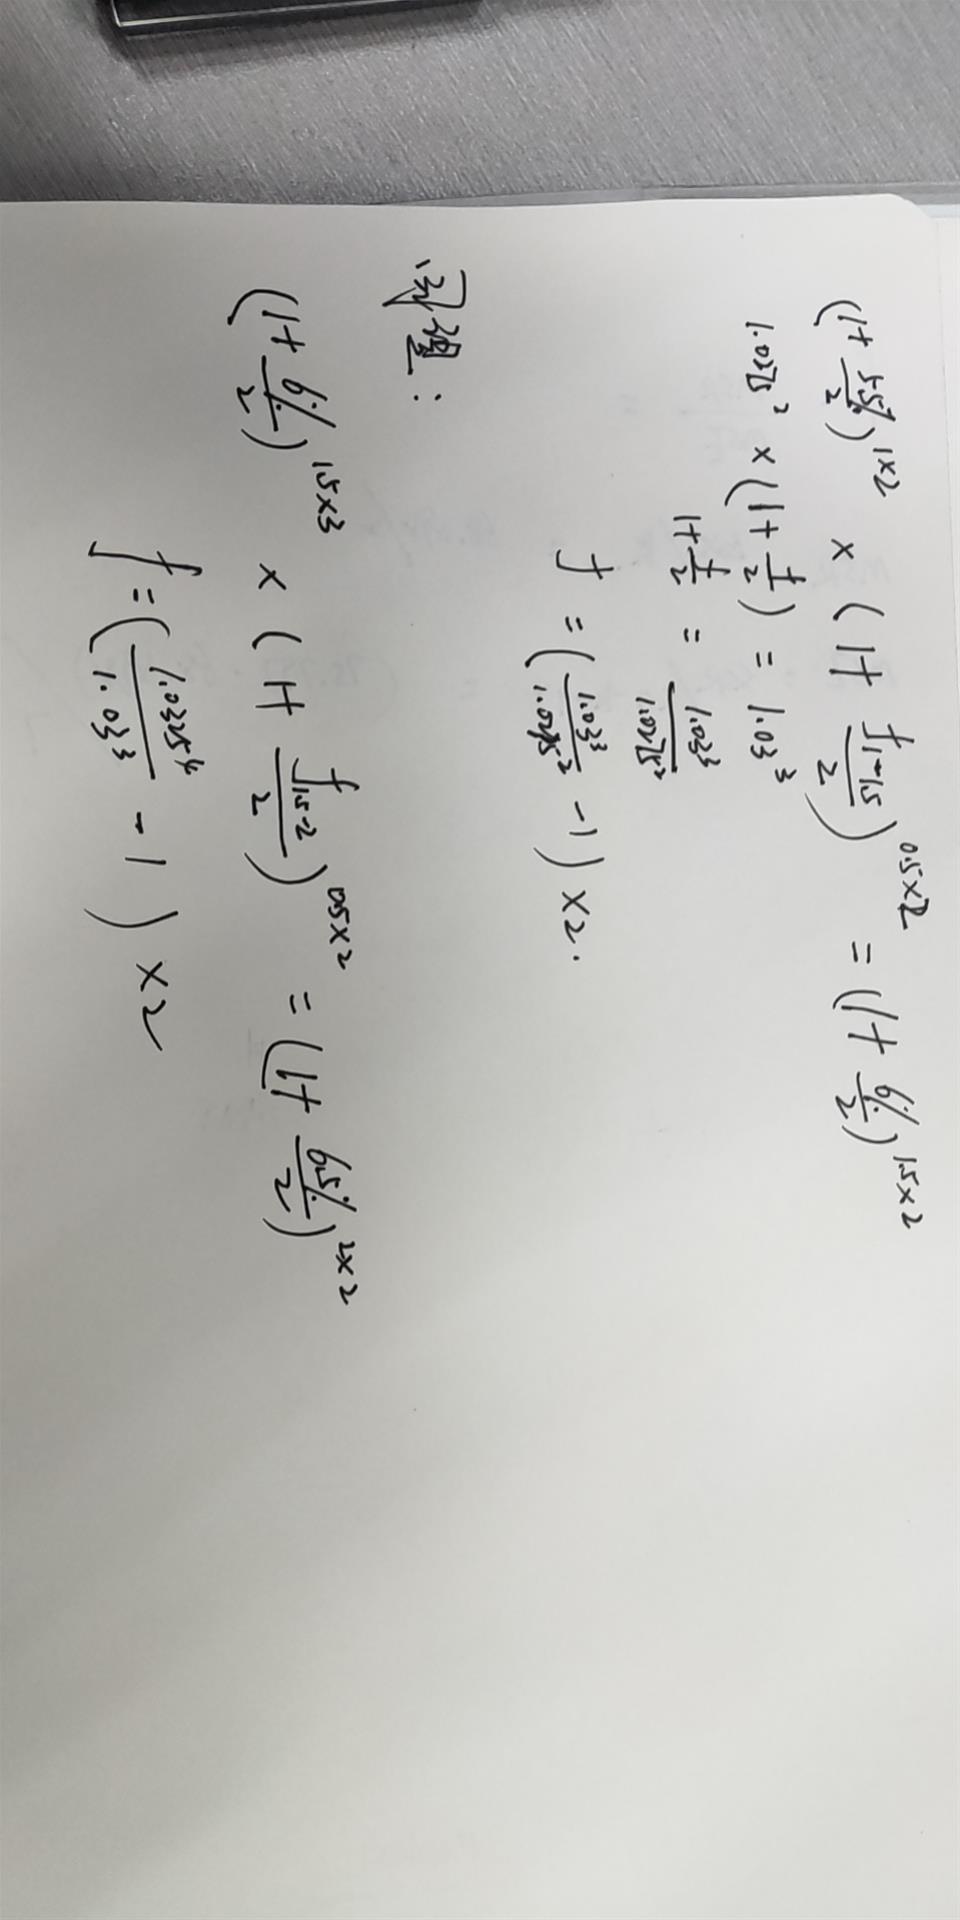 (1+ 5.5%/2)^1×2 × (1+ f1-1.5/2)^0.5×2 = (1+ 6%/2)^1.5×2
1.0275^2 × (1+ f/2) = 1.03^3
1+ f/2 = 1.03^3/1.0275^2
f = (1.03^3/1.0275^2 - 1) ×2.
同理:
(1+ 6%/2)^1.5×3 × (1+ f1.5-2/2)^0.5×2 = (1+ 6.5%/2)^2×2
f = (1.0325^4/1.03^3 - 1) ×2